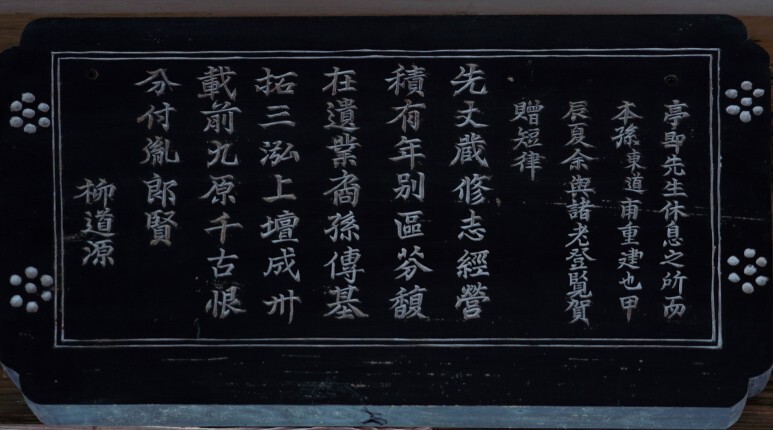 亭即先生休息之所而
本孫東道甫重建也甲
辰夏余與諸老登覧賀
贈短律
先丈蔵修志經營
積有年別區芬馥
在遺業裔孫傳基
拓三泓上壇成卅
載前九原千古恨
分付胤郎賢
柳道源